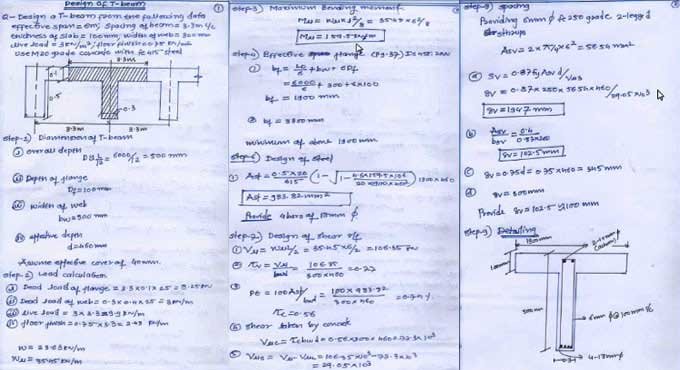 Design of T-beam
①
Q- Design a T-beam from the following data
effective span = 6m; Spacing of beam = 3.3m c/c
thickness of slab = 100mm; width of web = 300mm
live load = 3kN/m²; floor finish = 0.75 kN/m²
Use M20 grade concrete with fe 415 steel
3.3m
0.1
0.5
0.3
3.3m
3.3m
Step-1) Dimension of T-beam
① overall depth
= 6000/12 = 500 mm
② Depth of flange
Df = 100mm
③ width of web
bw = 300mm
④ effective depth
d = 460mm
Assume effective cover of 40mm.
Step-2) Load calculation
① Dead load of flange = 3.3×0.1×25 = 8.25
② Dead load of web = 0.3×0.4×25 = 3 kN/m
③ live load = 3×3.3 = 9.9 kN/m
④ floor finish = 0.75×3.3 = 2.48 kN/m
W = 23.63 kN/m
Wu = 35.45 kN/m
②
Step-3) Maximum Bending moment
Mu = Wul²/8 = 35.45×6²/8
Mu = 159.5 kN/m
Step-4) Effective flange (Pg.37) IS 456:2000
① bf = l0/6 + bw + 6Df
= 6000/6 + 300 + 6×100
bf = 1900 mm
② bf = 3300 mm
minimum of above 1900 mm
Design of Steel
① Ast = 0.5×20/415 (1 - √1 -
Ast = 983.82 mm²
Provide 4 bars of 18mm ϕ
Step-7) Design of Shear
① Vu = Wul/2 = 35.45×6/2 = 106.35 kN
② τv = Vu/bwd = 106.35/300×460 = 0.77
③ pt = 100Ast/bwd = 100×983.82/300×460 = 0.71 %
τc = 0.56
④ Shear taken by concrete
Vuc = τcbwd = 0.56×300×460 = 77.3×10³
⑤ Vus = Vu - Vuc = 106.35×10³ - 77.3×10³
= 29.05×10³
Step-8) Spacing
Providing 6mm ϕ fe 250 grade 2-legged
stirrups
Asv = 2×π/4×6² = 56.54 mm²
ⓐ Sv = 0.87fyAsvd/Vus
Sv = 0.87×250×56.54×460/29.05×10³
Sv = 194.7 mm
ⓑ Asv/bSv = 0.4/0.87×250
Sv = 102.5 mm
ⓒ Sv = 0.75d = 0.75×460 = 345 mm
ⓓ Sv = 300mm
Provide Sv = 102.5 ≃ 100 mm
Step-9) Detailing
1900 mm
100mm
500mm
6mm ϕ @ 100mm c/c
0.3
4-18mmϕ